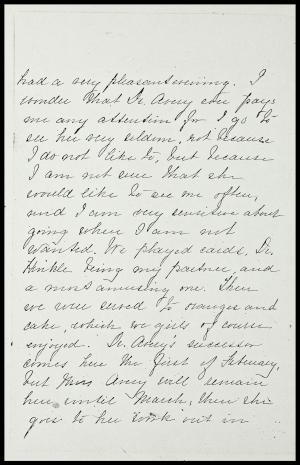 had a very pleasant evening. I
wonder that Dr. Avery ever pays
me any attention for I go to
see her very seldom, not because
I do not like to, but because
I am not sure that she
would like to see me often,
and I am very sensitive about
going when I am not
wanted. We played cards, Dr.
Hinkle being my partner, and
a most amusing one. Then
we were served to oranges and
cake, which we girls of course
enjoyed. Dr. Avery's successor
comes here the first of February,
but Miss Avery will remain
here until March, then she
goes to her work out in